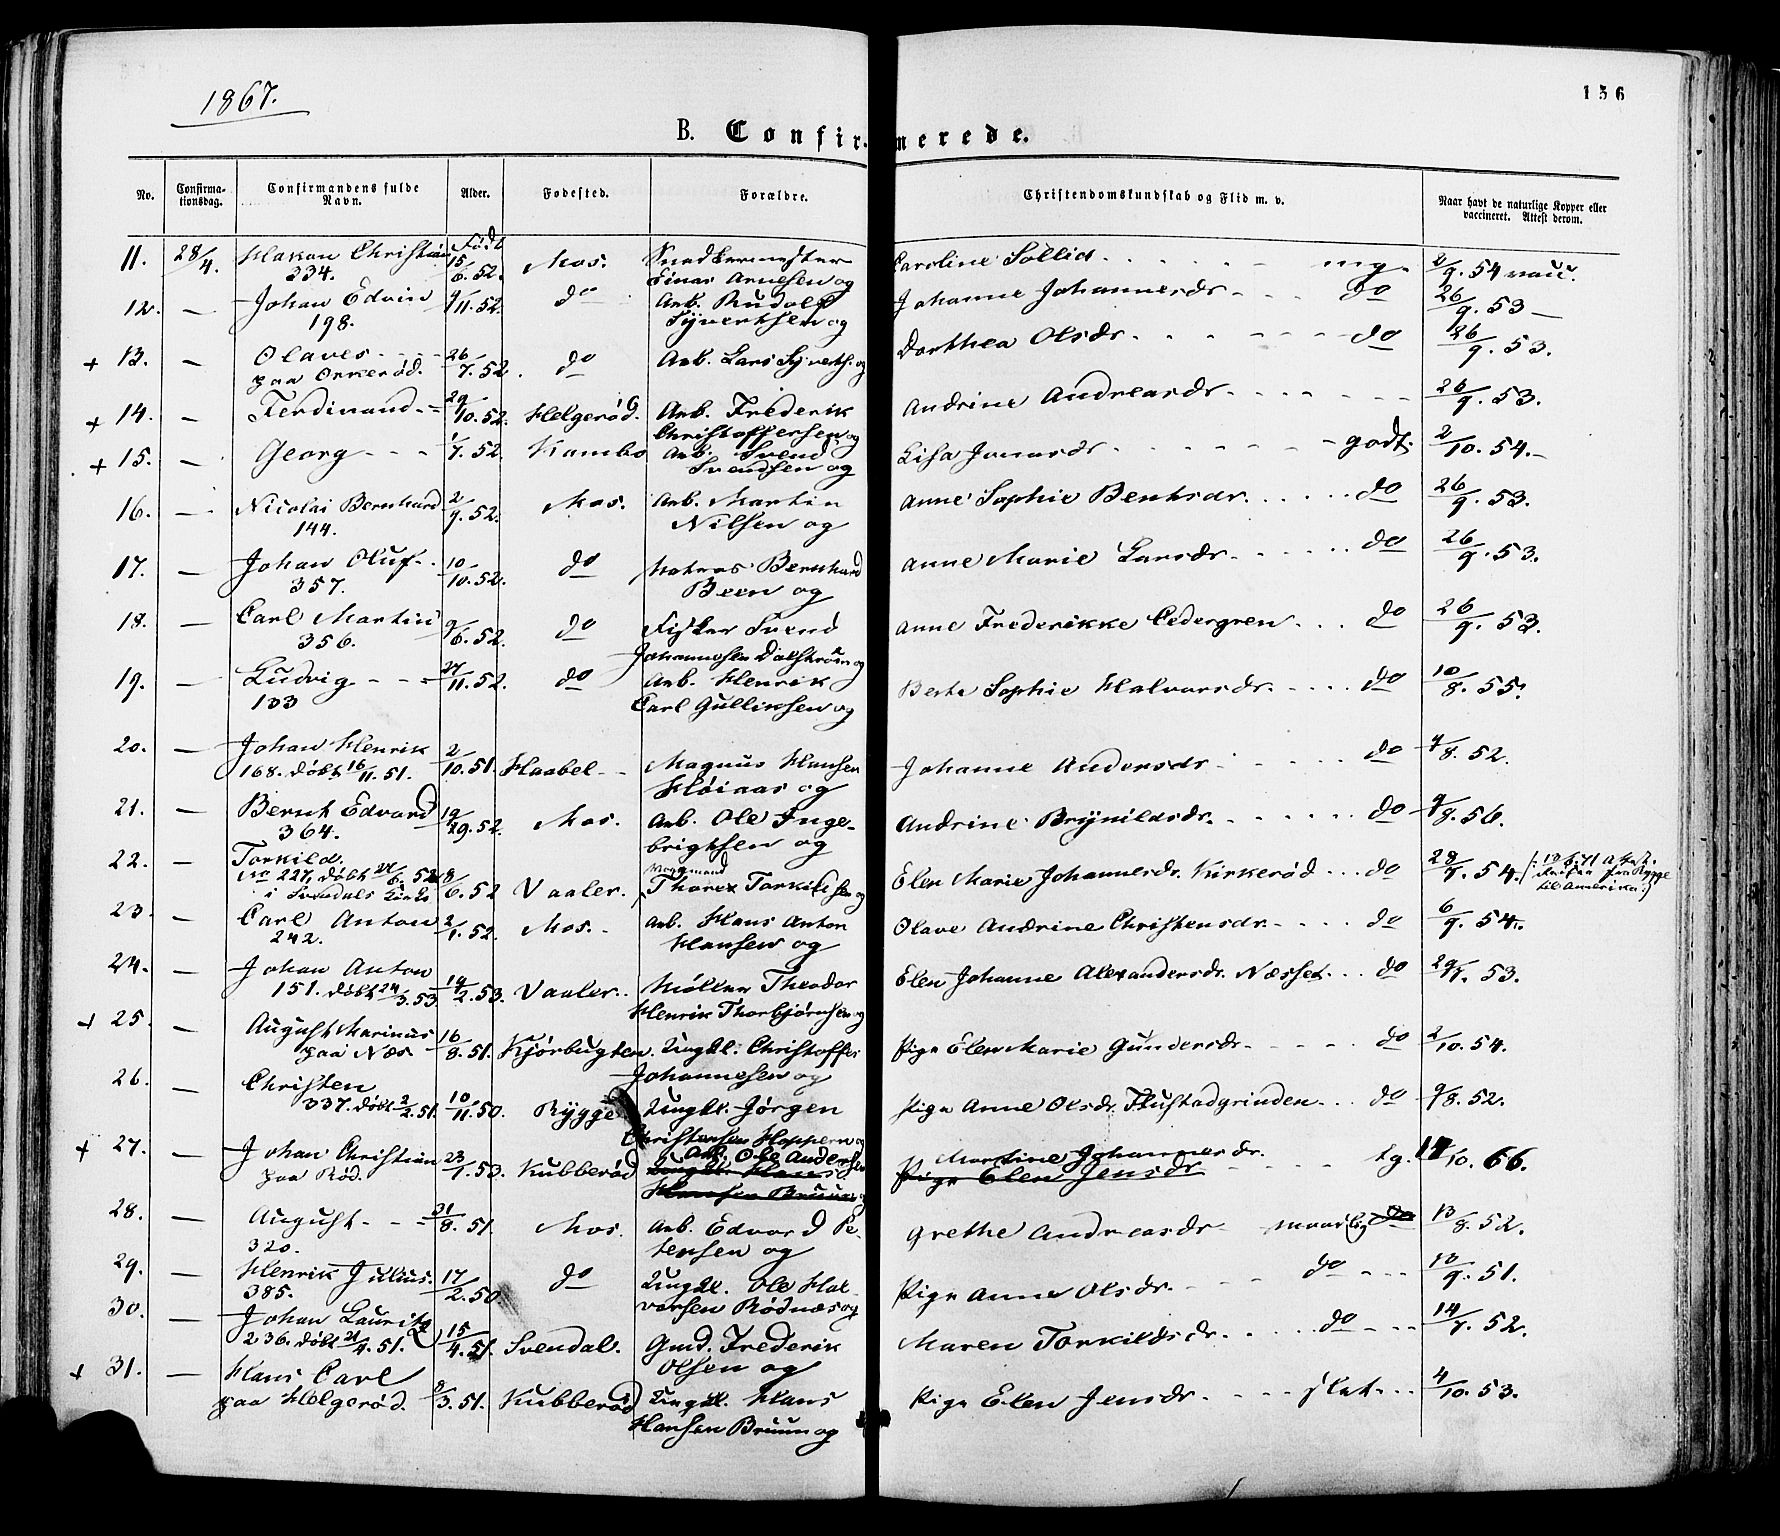 1867.
156
B. Confirmerede.
No. Confirmationsdag. Confirmandens fulde Navn. Alder. Fødested. Forældre. Christendomskundskab og Flid m. v. Naar havt de naturlige Kopper eller vaccineret. Attest derom.
11. 28/4. Hakan Christian Født 15/6. 52. Mos. Snedkermester Caroline Sollid mg. 2/9. 54 vacc.
334. Einar Arnesen og
12. — Johan Edvin 9/11. 52. do Arb. Rudolf Johanne Johannesdr. do 26/9. 53 —
198. Syvertsen og
+ 13. — Olaves 26/7. 52. do Arb. Lars Syverts. og Dorthea Olsdr. do 26/9. 53.
paa Orkerød.
+ 14. — Ferdinand 29/10. 52. Helgerød. Arb. Frederik Andrine Andreasdr. 26/9. 53.
Christoffersen og
+ 15. — Georg 1/7. 52. Kambo Arb. Svend Lisa Jonasdr. godt. 2/10. 54. —
Svendsen og
16. — Nicolai Bernhard 2/9. 52. Mos. Arb. Martin Anne Sophie Bentsdr. do 26/9. 53.
144. Nilsen og
17. — Johan Oluf 10/10. 52. do Matros Bernhard Anne Marie Larsdr. do 26/9. 53.
357. Been og
18. — Carl Martin 9/6. 52. do Fisker Svend Anne Frederikke Cedergren do 26/9. 53.
356. Johannesen Dalstrøm og
19. — Ludvig 27/11. 52. do Arb. Henrik Berte Sophie Halvorsdr. do 10/8. 55.
133 Carl Gulliksen og
20. — Johan Henrik 2/10. 51. Haabel Magnus Hansen Johanne Andersdr do 4/8. 52.
168. døbt 16/11. 51. Høiaas og
21. — Bernt Edvard 19/9. 52. Mos. Arb. Ole Inge- Andrine Brynildsdr. do 9/8. 56.
364. brigtsen og
22. — Torkild. 8/6. 52 Vaaler. Thorer Torkildsen og Elen Marie Johannesdr. Kirkerød do 28/7. 54.
No 227, døbt 27/6. 52 i Svendals Kirke
til Amerika.)
23. — Carl Anton 2/1. 52. Mos. Arb. Hans Anton Olave Andrine Christensdr. do 6/9. 54.
242. Hansen og
24. — Johan Anton 19/2. 53. Vaaler. Møller Theodor Elen Johanne Alexandersdr. Næsset do 29/7. 53.
151. døbt 24/3. 53 Henrik Thorbjørnsen og
+ 25. — August Marinus 16/8. 51. Kjørbugten. Ungkl. Christoffer Pige Elen Marie Gundersdr. do 2/10. 54.
paa Næs Johannesen og
26. — Christen 10/11. 50. Rygge Ungkl. Jørgen Pige Anne Olsdr. Flustadgrinden do 9/8. 52.
337. døbt 2/2. 51 Christensen Hoppern og
+ 27. — Johan Christian 23/1. 53. Kubberød Arb. Ole Andersen Martine Johannesdr. tg. 17/10. 66.
paa Rød. Ungkl. Hans Hansen Bruun og Pige Elen Jensdr
28. — August 21/8. 51. Mos. Arb. Edvard Pe- Grethe Andreasdr maadlig do 13/8. 52.
320. tersen og
29. — Henrik Julius. 17/2. 50. do Ungkl. Ole Hal- Pige Anne Olsdr. do 18/9. 51.
385. vorsen Rødnæs og
30. — Johan Lauritz 15/4. 51. Svendal. Gmd. Frederik Maren Torkildsdr. do 14/7. 52.
236. døbt 21/4. 51. Olsen og
+ 31. — Hans Carl 8/3. 51. Kubberød Ungkl. Hans Pige Elen Jensdr. slet 4/10. 53.
paa Helgerød. Hansen Bruun og